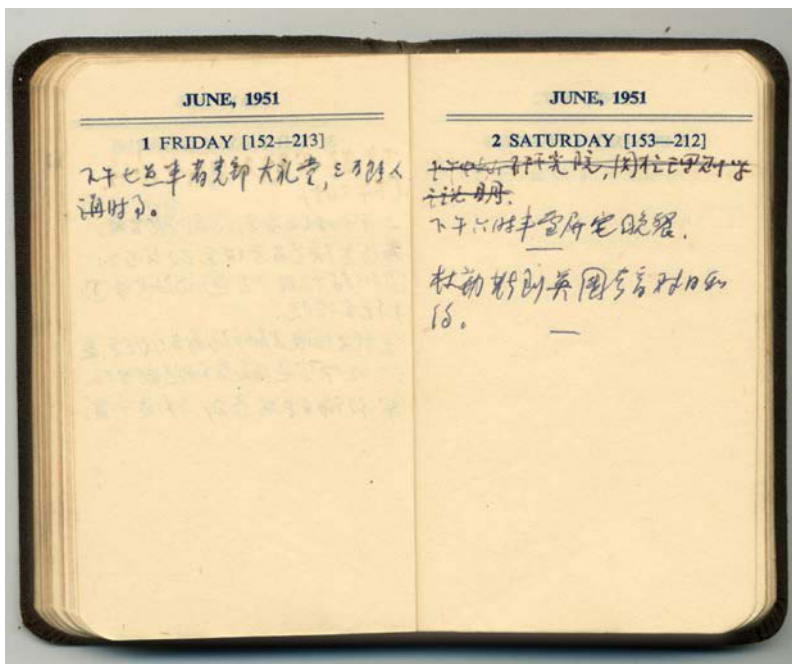 JUNE, 1951
1 FRIDAY [152—213]
下午七点半省党部大礼堂,三百余人
满时了。
JUNE, 1951
2 SATURDAY [153—212]
下午 研究院,
说明。
下午六时半雪屏宅晚餐.
杜勒斯到英国去商对日和
约。